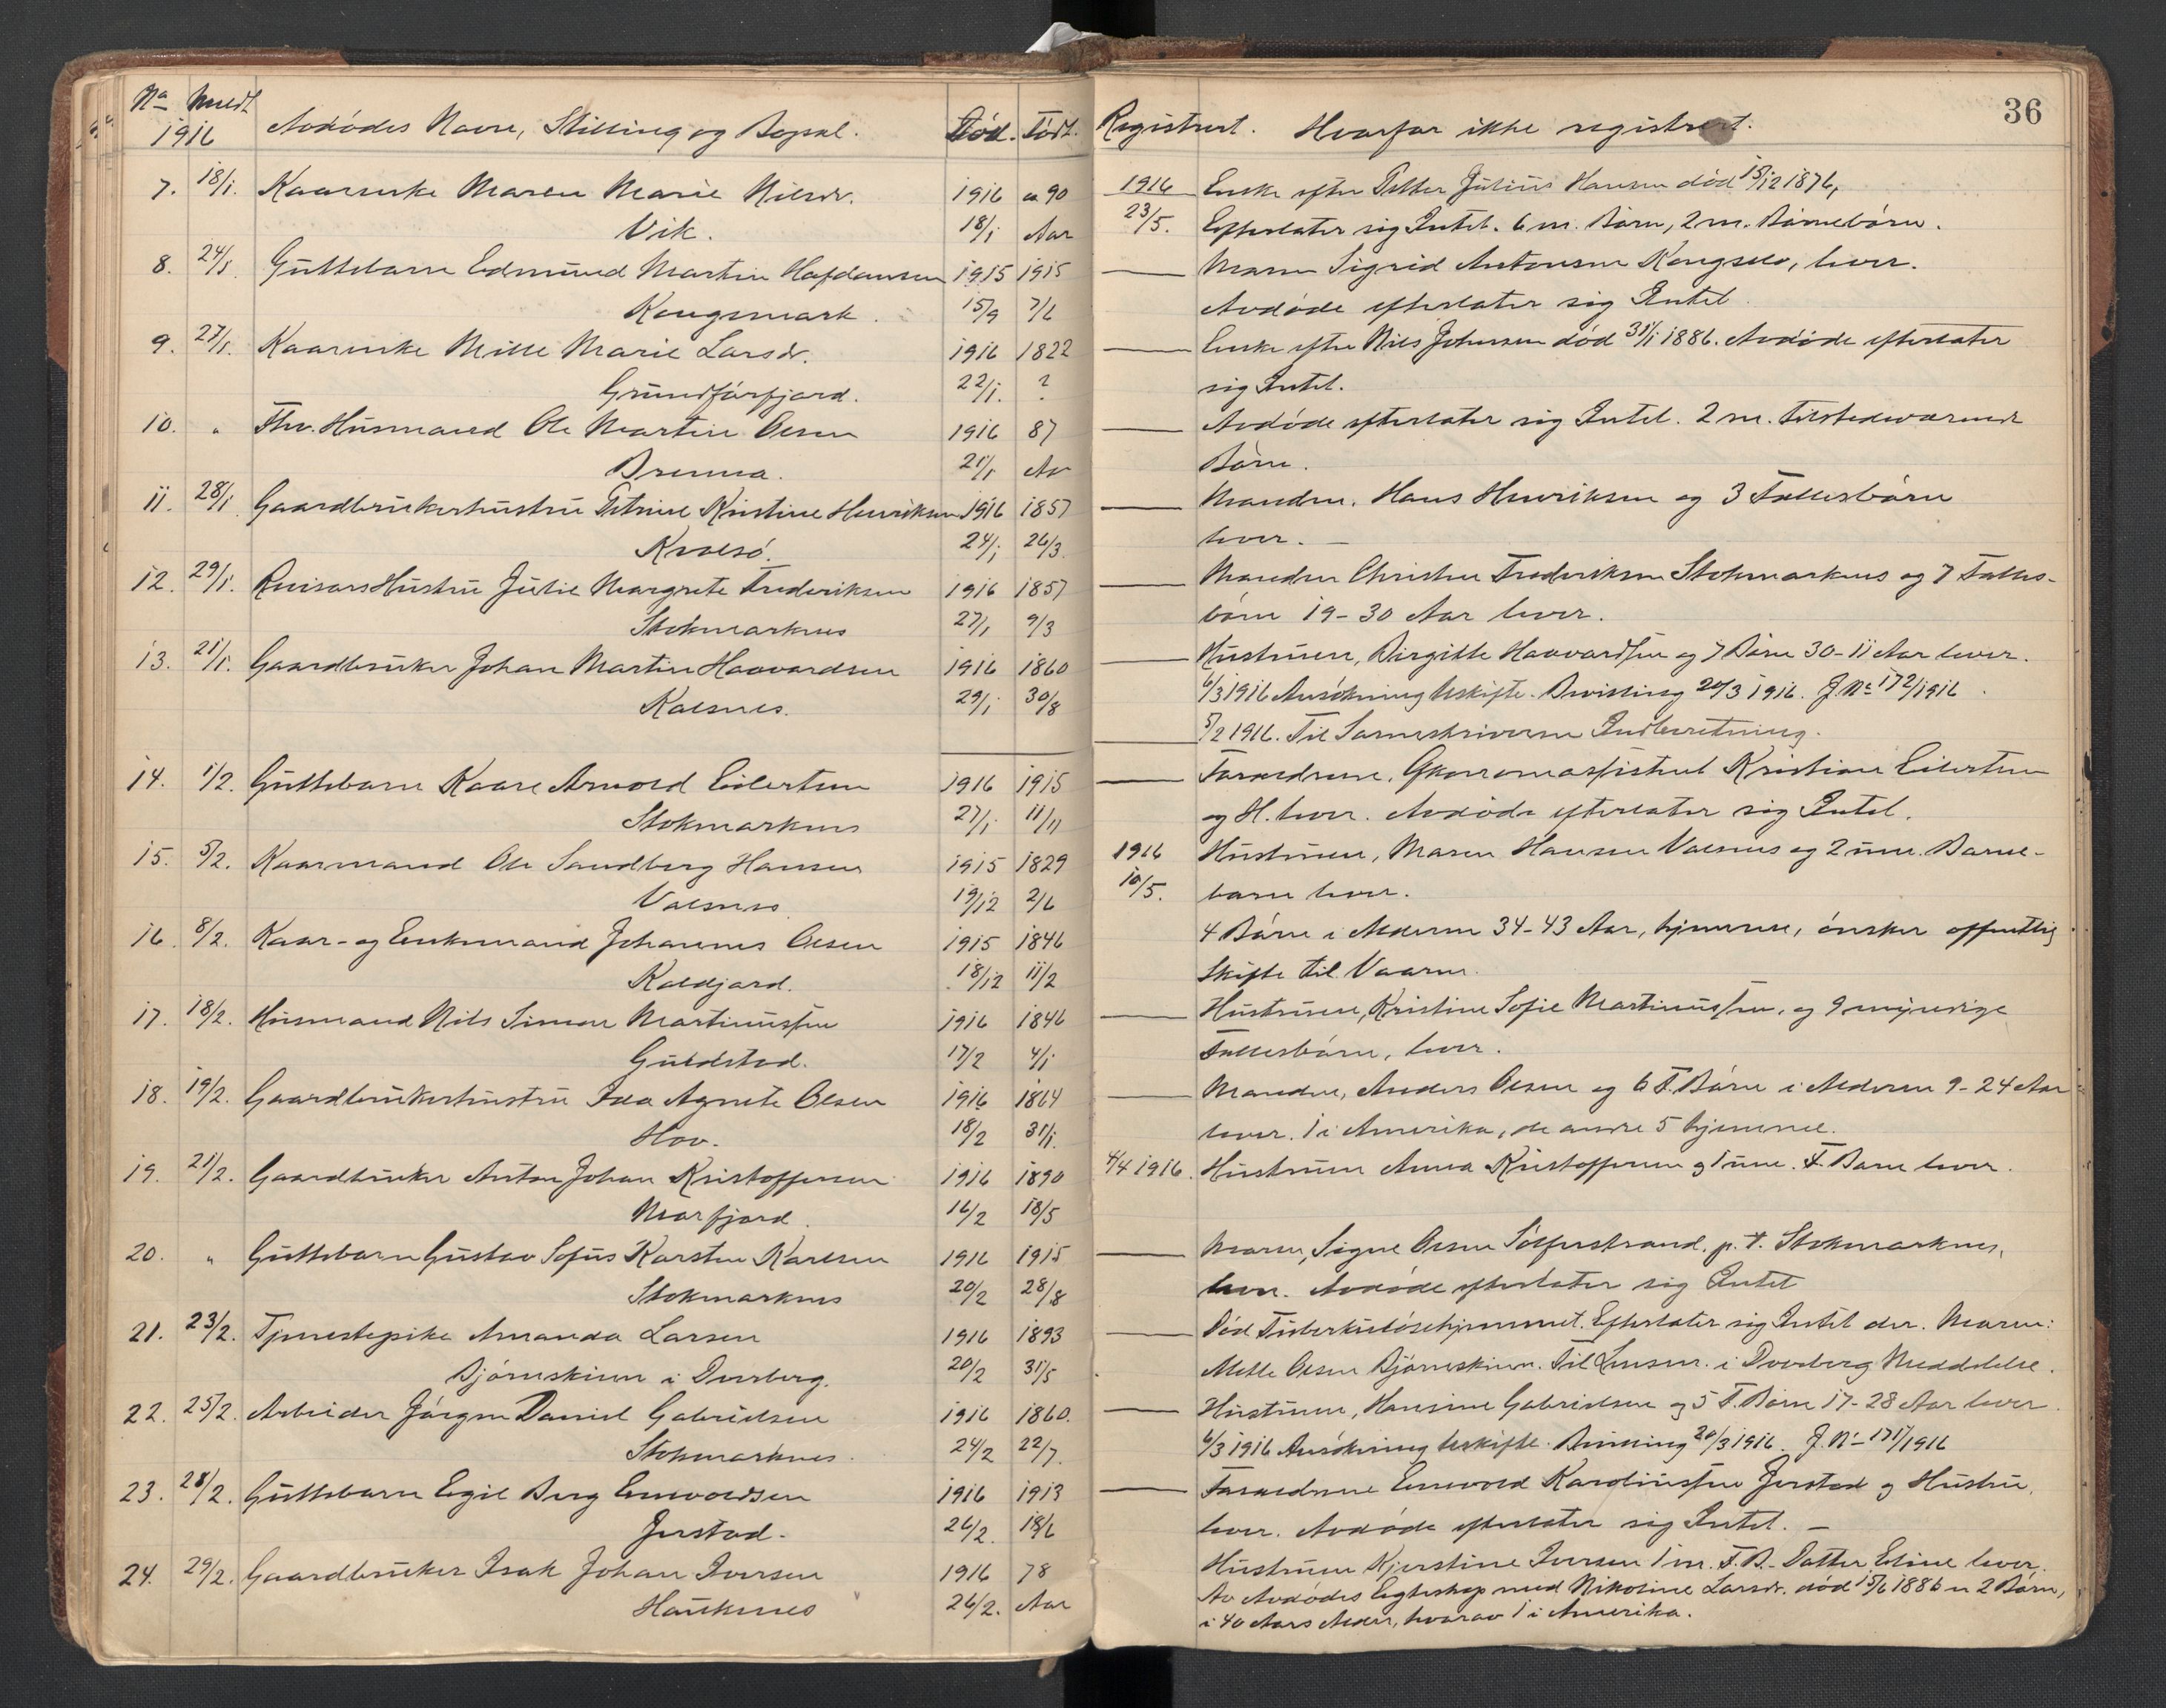 36
No Meldt 1916 Avdødes Navn, Stilling og Bopæl. Død. Født. Registrert. Hvorfor ikke registrert.
7. 18/1. Kaarenke Maren Marie Nilsdr. 1916 ca 90 1916 Enke efter Petter Julius Hansen død 15/12 1876,
Vik. 18/1 Aar 23/5. Efterlater sig Intet. 6 m. Børn, 2 m. Børnebørn.
8. 24/1. Guttebarn Edmund Martin Hafdansen 1915 1915 Moren Sigrid Antonsen Kongselv, lever.
Kongsmark. 15/9 7/6 Avdøde efterlater sig Intet.
9. 27/1. Kaarenke Mille Marie Larsdr. 1916 1822 Enke efter Nils Johnsen død 31/1 1886. Avdøde efterlater
Grundførfjord. 22/1. ? sig Intet.
10. " Fhv. Husmand Ole Martin Olsen 1916 87 Avdøde efterlater sig Intet. 2 m. tilstedeværende
Brenna. 21/1 Aar Børn.
11. 28/1 Gaardbrukerhustru Petrine Kristine Henriksen 1916 1857 Manden, Hans Henriksen og 3 Fællesbørn
Kvalsø. 24/1 26/3. lever. —
12. 29/1. Revisors Hustru Julie Margrete Frederiksen 1916 1857 Manden Christen Frederiksen Stokmarknes og 7 Fælles-
Stokmarknes 27/1 9/3 børn 19-30 Aar lever.
13. 21/1. Gaardbruker Johan Martin Haavardsen 1916 1860 Hustruen, Birgitte Haavardsen og 7 Børn 30-11 Aar lever.
Kalsnes. 29/1 30/8 6/3 1916 Ansøkning Uskifte. Bevilling 20/3 1916. J. No 172/1916.
5/2 1916. Til Sorenskriveren Indberetning.
14. 1/2. Guttebarn Kaare Arnold Eilertsen 1916 1915 Forældrene, Kristian Eilertsen
Stokmarknes 27/1 11/11 og H. lever. Avdøde efterlater sig Intet.
15. 5/2. Kaarmand Ole Sandberg Hansen 1915 1829 1916 Hustruen, Maren Hansen Valsnes og 2 um. Barne-
Valsnes 19/12 2/6 10/5. barn lever.
16. 8/2. Kaar- og Enkemand Johannes Olsen 1915 1846 4 Børn i Alderen 34-43 Aar, hjemme, ønsker offentlig
Kaldjord. 18/12 11/2 Skifte til Vaaren.
17. 18/2. Husmand Nils Simon Martinussen 1916 1846 Hustruen, Kristine Sofie Martinussen, og 9 myndige
Guldstad. 17/2 4/1 Fællesbørn, lever.
18. 19/2. Gaardbrukerhustru Ida Agnete Olsen 1916 1864 Manden, Anders Olsen og 6 F. Børn i Alderen 9-24 Aar
Hov. 18/2 31/1. lever. 1 i Amerika, de andre 5 hjemme.
19. 21/2. Gaardbruker Anton Johan Kristoffersen 1916 1890 4/4 1916. Hustruen Anna Kristoffersen og 1 um. F. Barn lever.
Morfjord. 16/2 18/5
20. " Guttebarn Gustav Sofus Karsten Karlsen 1916 1915 Moren, Signe Olsen Sølferstrand. p. t. Stokmarknes,
Stokmarknes 20/2 28/8 lever. Avdøde efterlater sig Intet
21. 23/2. Tjenestepike Amanda Larsen 1916 1893 Død Tuberkulosehjemmet. Efterlater sig Intet der. Moren:
Bjørnskinn i Dverberg. 20/2 31/5 Mette Olsen Bjørnskinn. Til Lensm. i Dverberg Meddelelse.
22. 25/2. Arbeider Jørgen Daniel Gabrielsen 1916 1860. Hustruen, Hansine Gabrielsen og 5 F. Børn 17-28 Aar lever.
Stokmarknes. 24/2 22/7. 6/3 1916 Ansøkning Uskifte. Bevilling 20/3 1916. J. No 171/1916
23. 28/2. Guttebarn Egil Berg Enevoldsen 1916 1913 Forældrene Enevold Karoliussen Jerstad og Hustru,
Jerstad. 26/2. 18/6 lever. Avdøde efterlater sig Intet. —
24. 29/2. Gaardbruker Isak Johan Iversen 1916 78 Hustruen Kjerstine Iversen 1 m. F. B. Datter Eline lever.
Hauknes 26/2. Aar Av Avdødes Egteskap med Nikoline Larsdr. død 15/6 1886 er 2 Børn,
i 40 Aars Alder, hvorav 1 i Amerika.